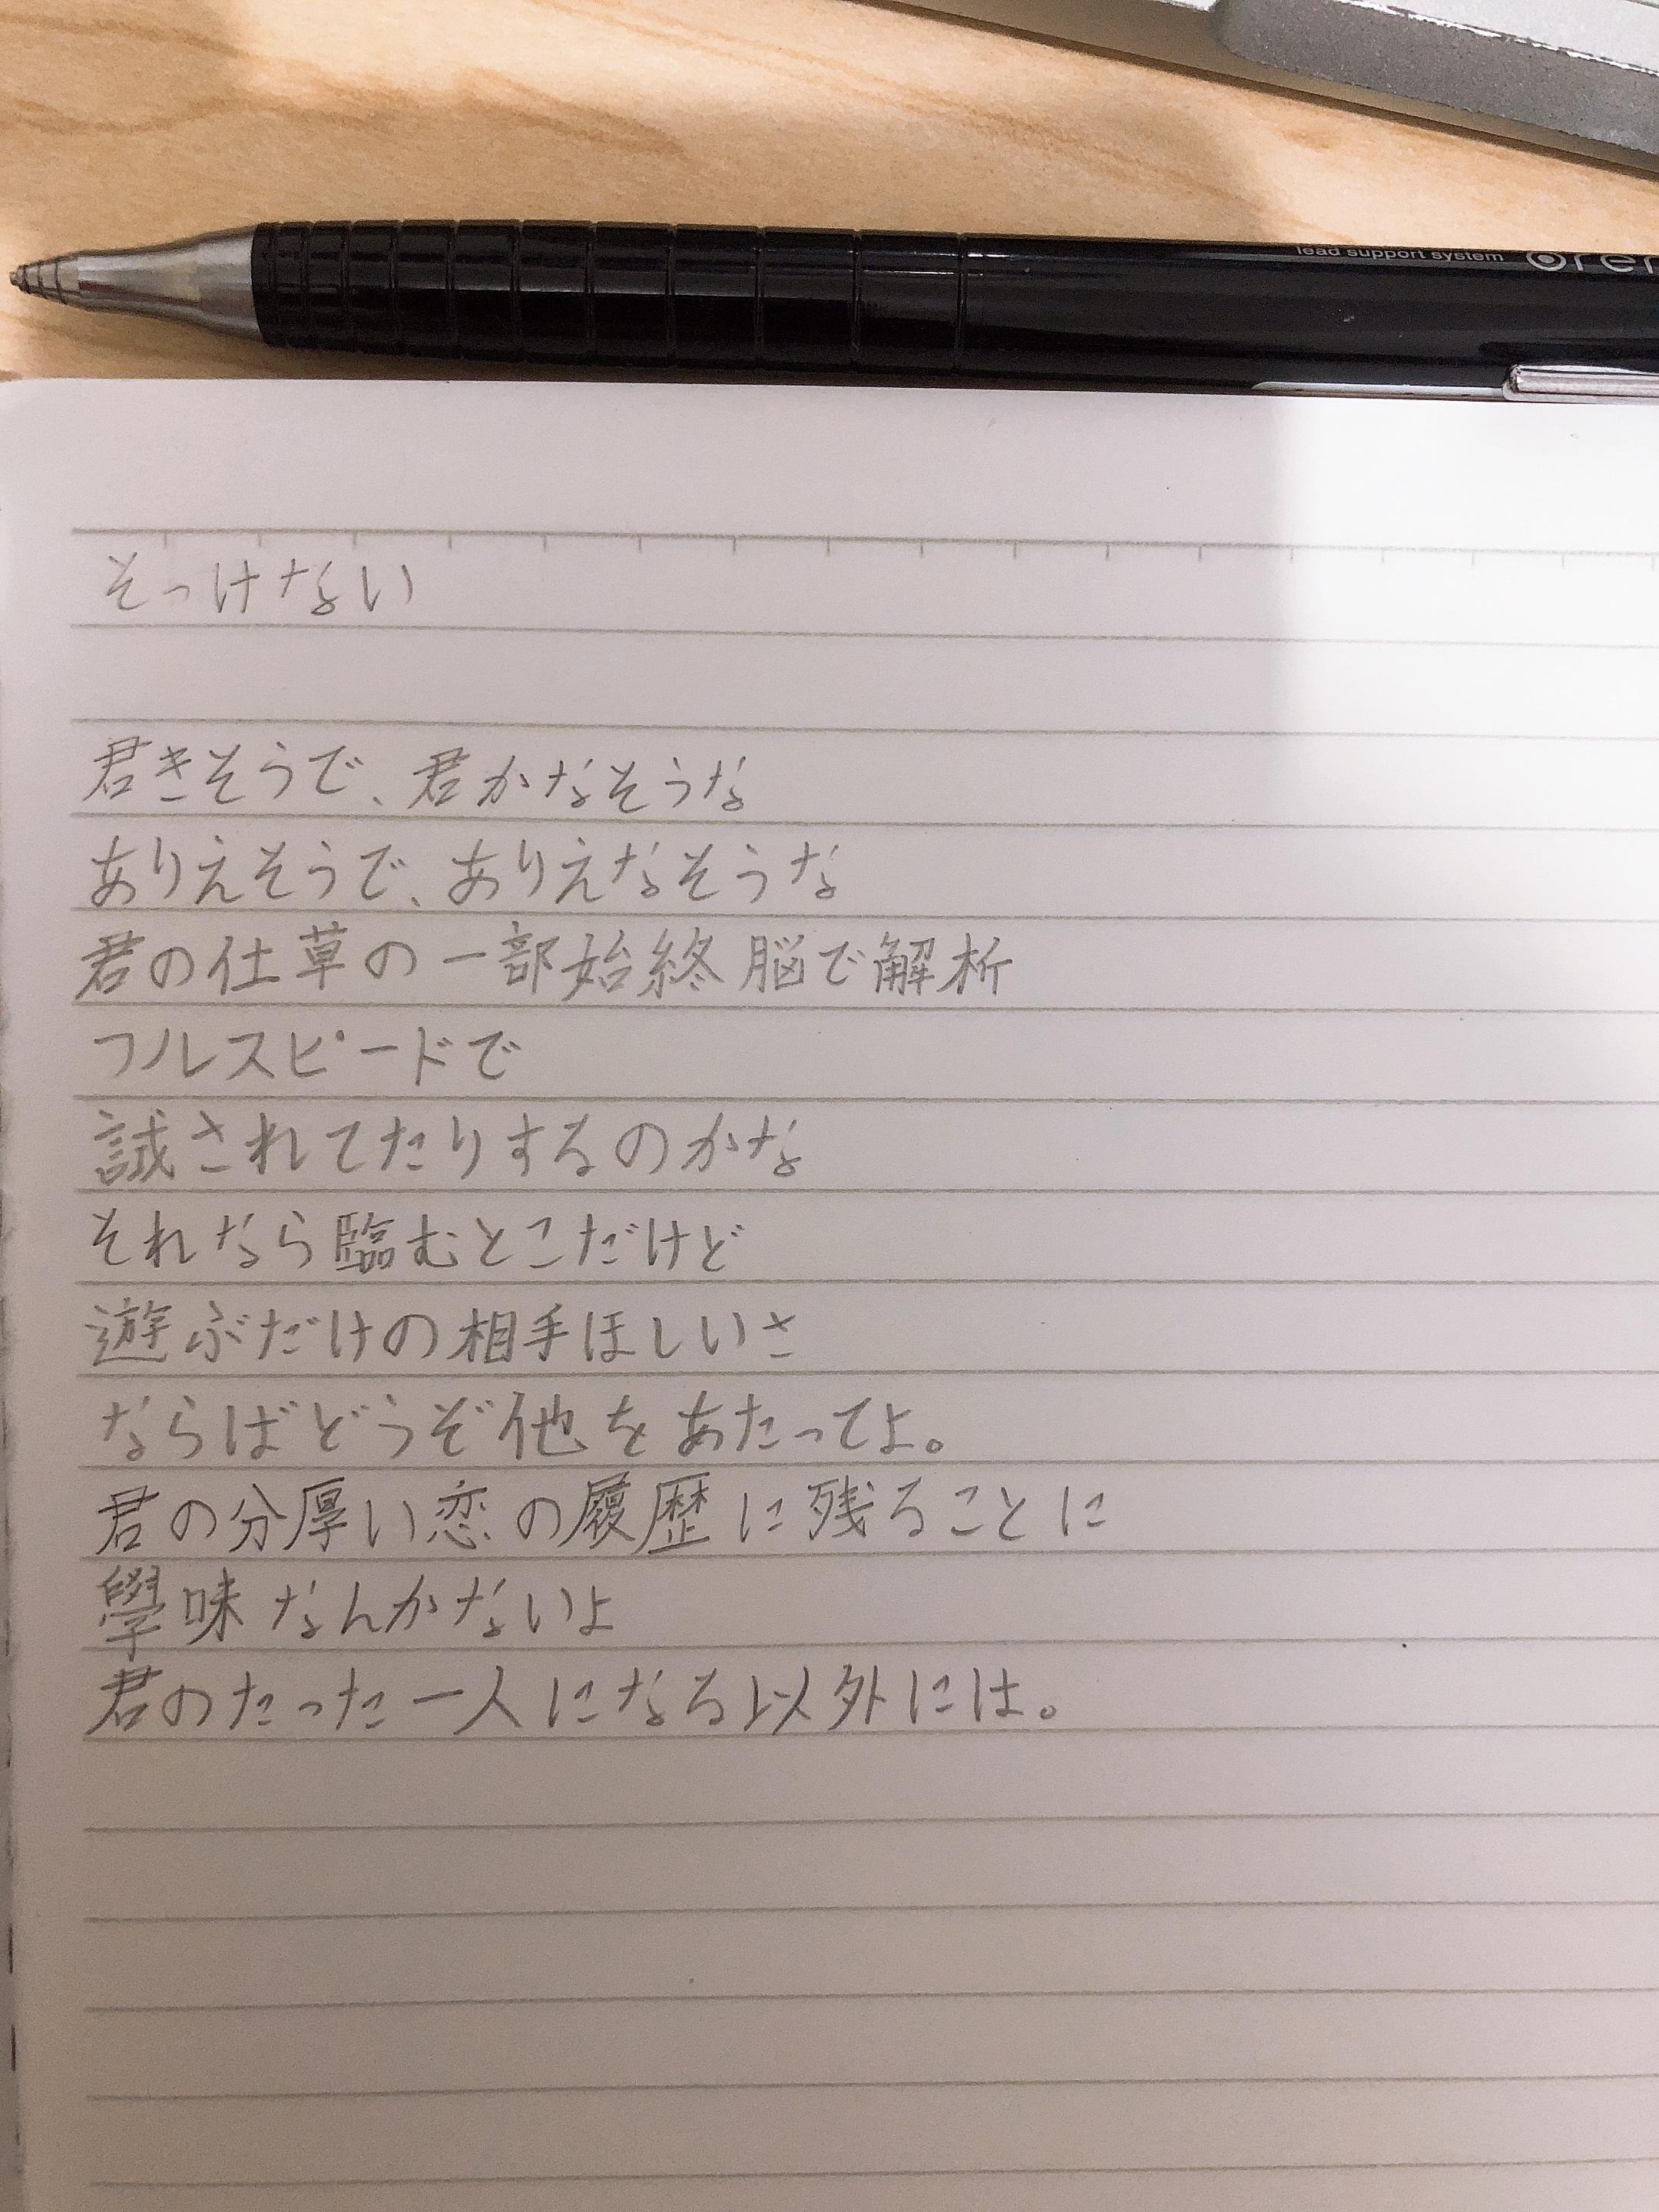 lead support system
そっけない
君きそうで、君かなそうな
ありえそうで、ありえなそうな
君の仕草の一部始終脳で解析
フルスピードで
誠されてたりするのかな
それなら臨むとこだけど
遊ぶだけの相手ほしいさ
ならばどうぞ他をあたってよ。
君の分厚い恋の履歴に残ることに
學味なんかないよ
君のたった一人になる以外には。